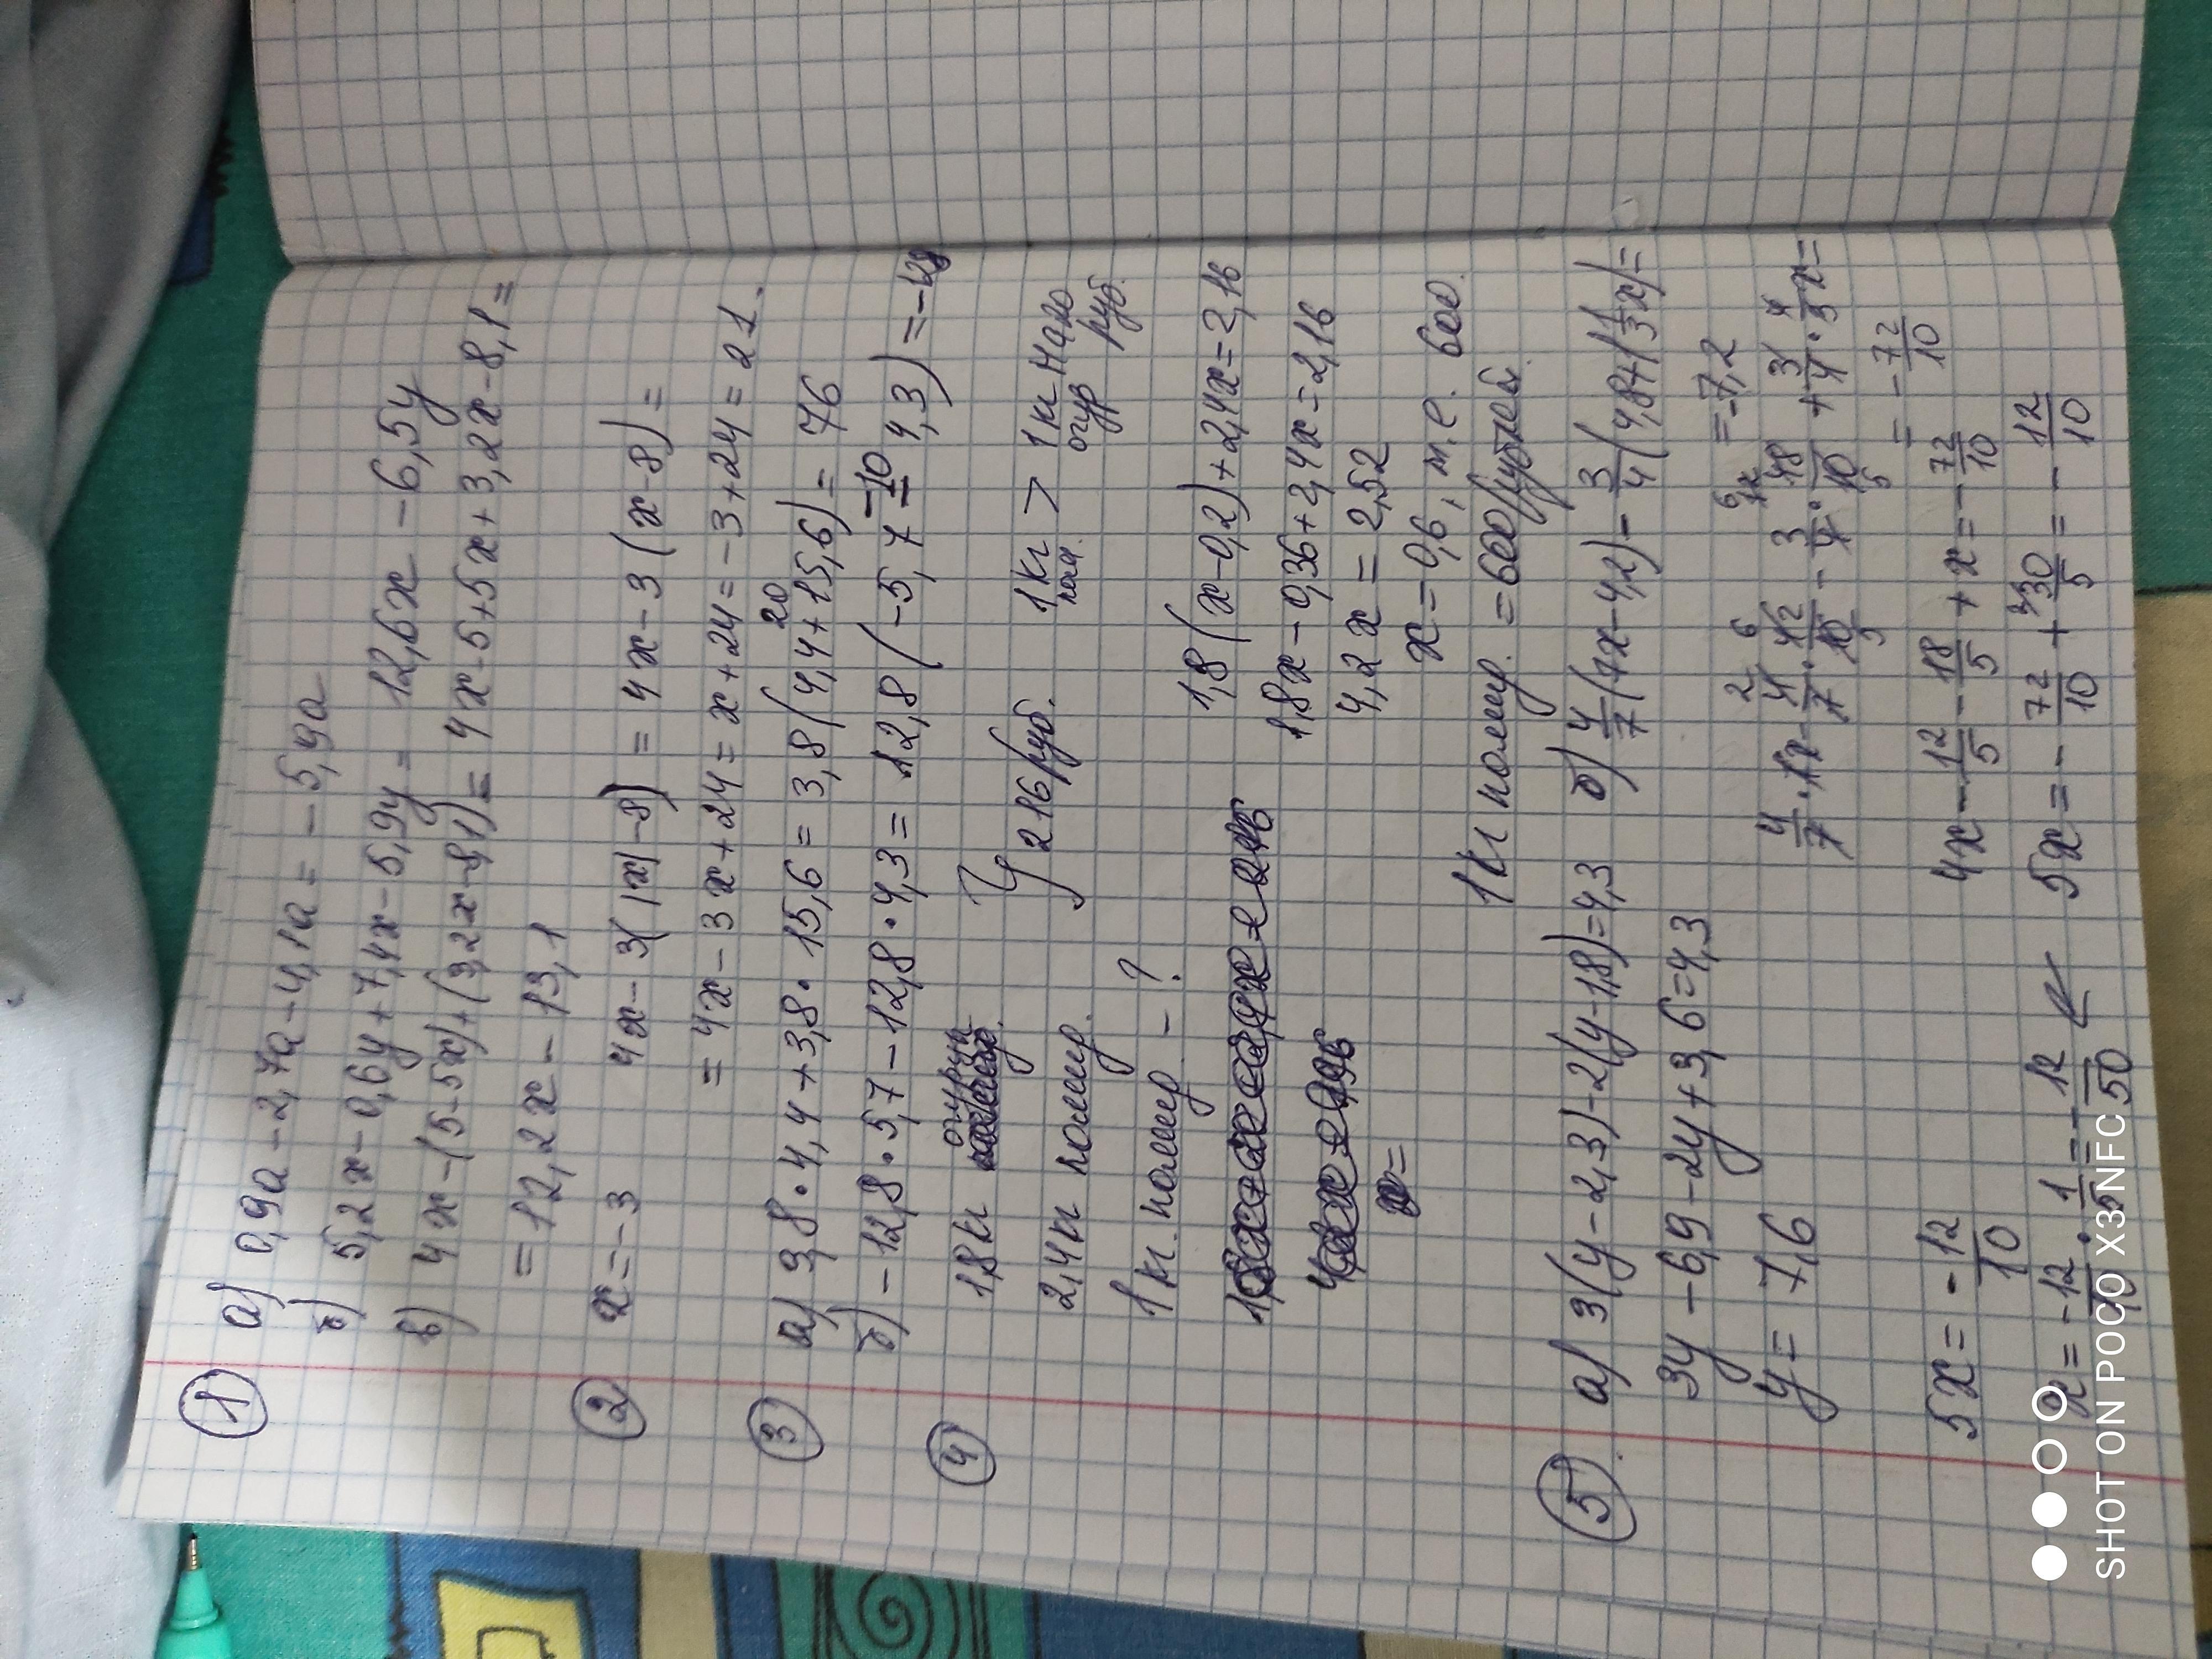 1 а) 0,9а - 2,7а - 4,1а = - 5,9а
б) 5,2х - 0,6у + 7,4х - 5,9у = 12,6х - 6,5у
в) 4х - (5 - 5х) + (3,2х - 8,1) = 4х - 5 + 5х + 3,2х - 8,1 =
= 12,2х - 13,1
2 х = - 3 4х - 3(1х) - 8) = 4х - 3 (х - 8) =
= 4х - 3х + 24 = х + 24 = - 3 + 24 = 21.
3 а) 3,8 · 4,4 + 3,8 · 15,6 = 3,8 (4,4 + 15,6) = 76
20
б) - 12,8 · 5,7 - 12,8 · 4,3 = 12,8 (- 5,7 - 4,3) = - 128
-10
4 1,8 кг огурца
2,4 кг помир.
216 руб.
1 кг пом. > 1 кг огур На 20 руб.
1 кг. помир - ?
1,8 (х - 0,2) + 2,4х = 2,16
1,8х - 0,36 + 2,4х = 2,16
4,2х = 2,52
х = 0,6, т.е. 600.
х =
1 кг помир. = 600 рублей.
5. а) 3(у - 2,3) - 2(у - 1,8) = 4,3
3у - 6,9 - 2у + 3,6 = 4,3
у = 7,6
б) 4/7 (7х - 4,2) - 3/4 (4,8 + 1 1/3 х) =
= - 7,2
4/7 · 7х - 4/7 · 42/10 - 3/4 · 48/10 + 3/4 · 4/3 х =
= - 72/10
4х - 12/5 - 18/5 + х = - 72/10
5х = - 72/10 + 30/5 = - 12/10
5х = - 12/10
х = - 12/10 · 1/5 = - 12/50
SHOT ON POCO X3 NFC